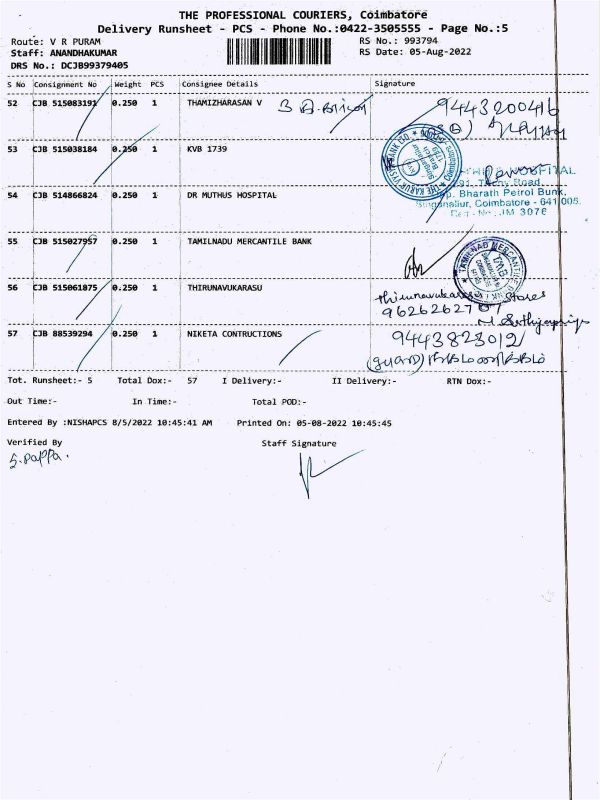 THE PROFESSIONAL COURIERS, Coimbatore
Delivery Runsheet - PCS - Phone No.:0422-3505555 - Page No.:5
Route: V R PURAM RS No.: 993794
Staff: ANANDHAKUMAR RS Date: 05-Aug-2022
DRS No.: DCJB99379405
S No Consignment No Weight PCS Consignee Details Signature
52 CJB 515083191 0.250 1 THAMIZHARASAN V 9443200416
53 CJB 515038184 0.250 1 KVB 1739
THE KARUR VYSYA BANK LTD
54 CJB 514866824 0.250 1 DR MUTHUS HOSPITAL
Bharath Petrol Bunk,
Singanallur, Coimbatore - 641 005.
55 CJB 515027957 0.250 1 TAMILNADU MERCANTILE BANK
TAMILNAD MERCANTILE BANK
56 CJB 515061875 0.250 1 THIRUNAVUKARASU
Thirunavukarasu Stores
57 CJB 88539294 0.250 1 NIKETA CONTRUCTIONS 9443823012
(guard)
Tot. Runsheet:- 5 Total Dox:- 57 I Delivery:- II Delivery:- RTN Dox:-
Out Time:- In Time:- Total POD:-
Entered By :NISHAPCS 8/5/2022 10:45:41 AM Printed On: 05-08-2022 10:45:45
Verified By Staff Signature
S. Pappa.